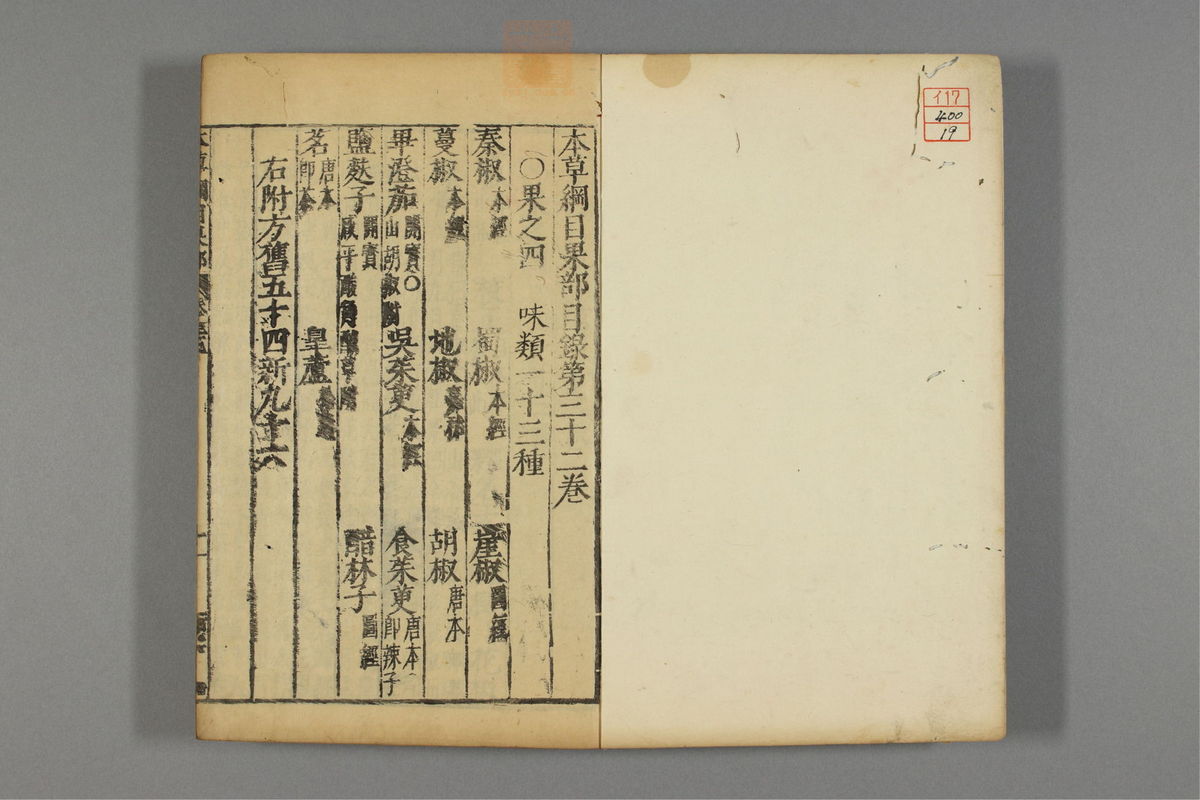 本草綱目果部目錄第三十二卷
○果之四 味類一十三種
秦椒本經 蜀椒本經 崖椒圖經
蔓椒本經 地椒嘉祐 胡椒唐本
畢澄茄開寶○山胡椒附 吳茱萸本經 食茱萸唐本即辣子
鹽麩子開寶 醋林子圖經
茗唐本即茶 皐蘆
右附方舊五十四新九十六
イ17
400
19